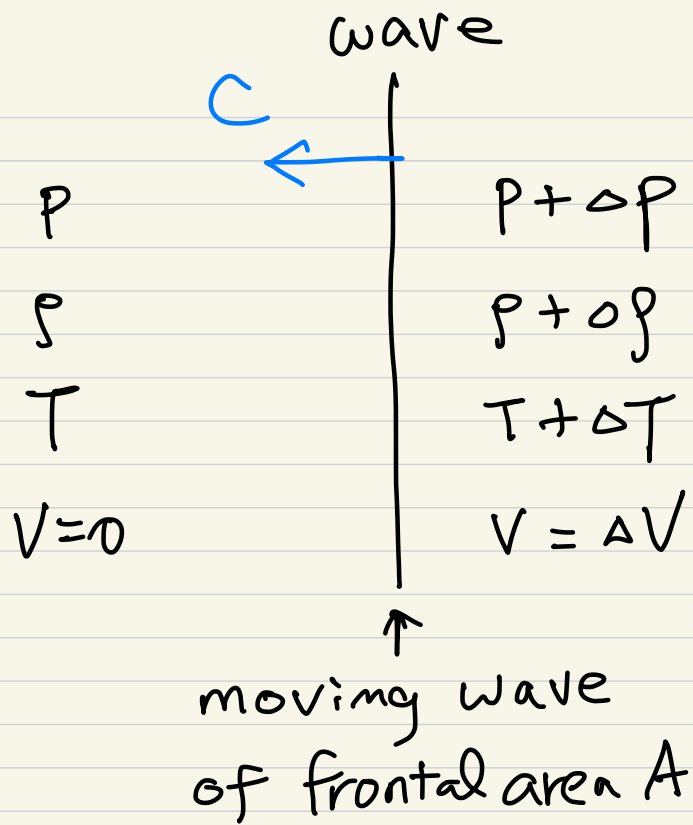 wave
C
P P + ΔP
ρ ρ + Δρ
T T + ΔT
V = 0 V = ΔV
↑
moving wave
of frontal area A